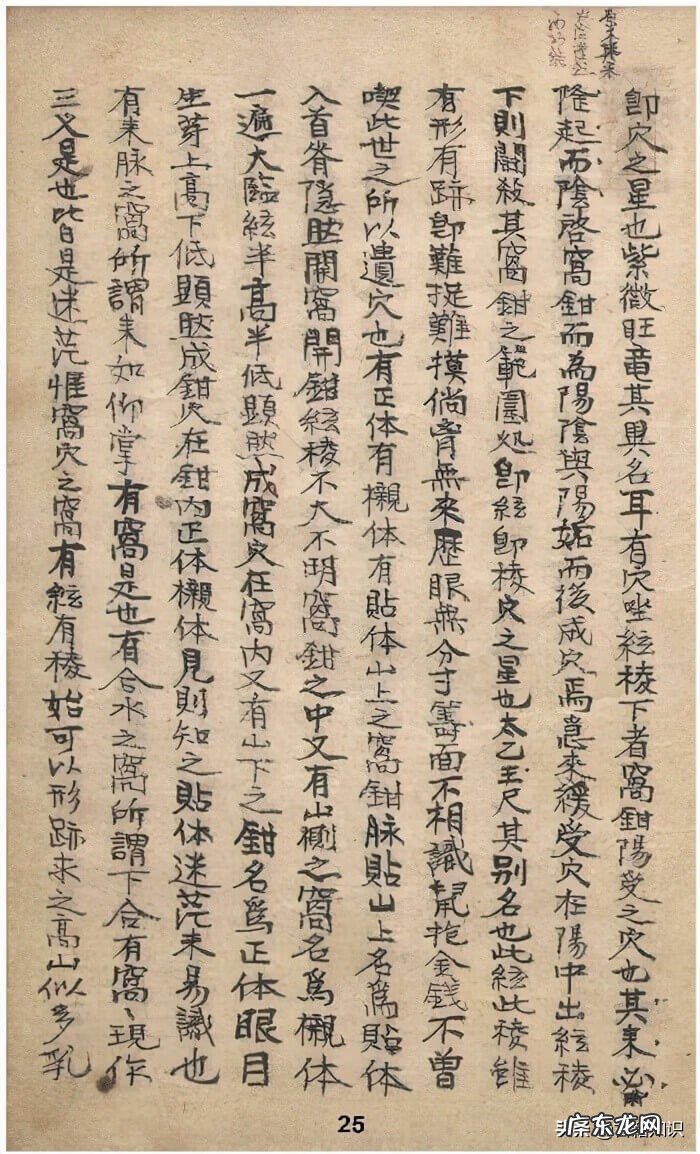 卽穴之星也紫微旺竜其異名耳有穴坐絃稜下者窩鉗陽受之穴也其來必
隆起而陰啓窩鉗而為陽陰與陽姤而後成穴焉急來緩受穴在陽中出絃稜
下則鬪殺其窩鉗之範圍処卽絃卽稜穴之星也太乙玉尺其別名也此絃此稜雖
有形有跡卽難捉難摸倘胷無來歷眼無分寸籌面不相識鼠抱金錢不曽
喫此世之所以遺穴也有正体有襯体有貼体山上之窩鉗脉貼山上名為貼体
入首脊隱肰開窩開鉗絃稜不大不明窩鉗之中又有山側之窩名爲襯体
一邉大臨絃半高半低顕肰成窩穴在窩内又有山下之鉗名爲正体眼目
生芽上高下低顕肰成鉗穴在鉗内正体襯体見則知之貼体迷茫未易識也
有来脉之窩所謂来如仰掌有窩是也有合水之窩所謂下合有窩、現作
三义是也此皆是迷茫惟窩穴之窩有絃有稜始可以形跡求之高山似多乳
25